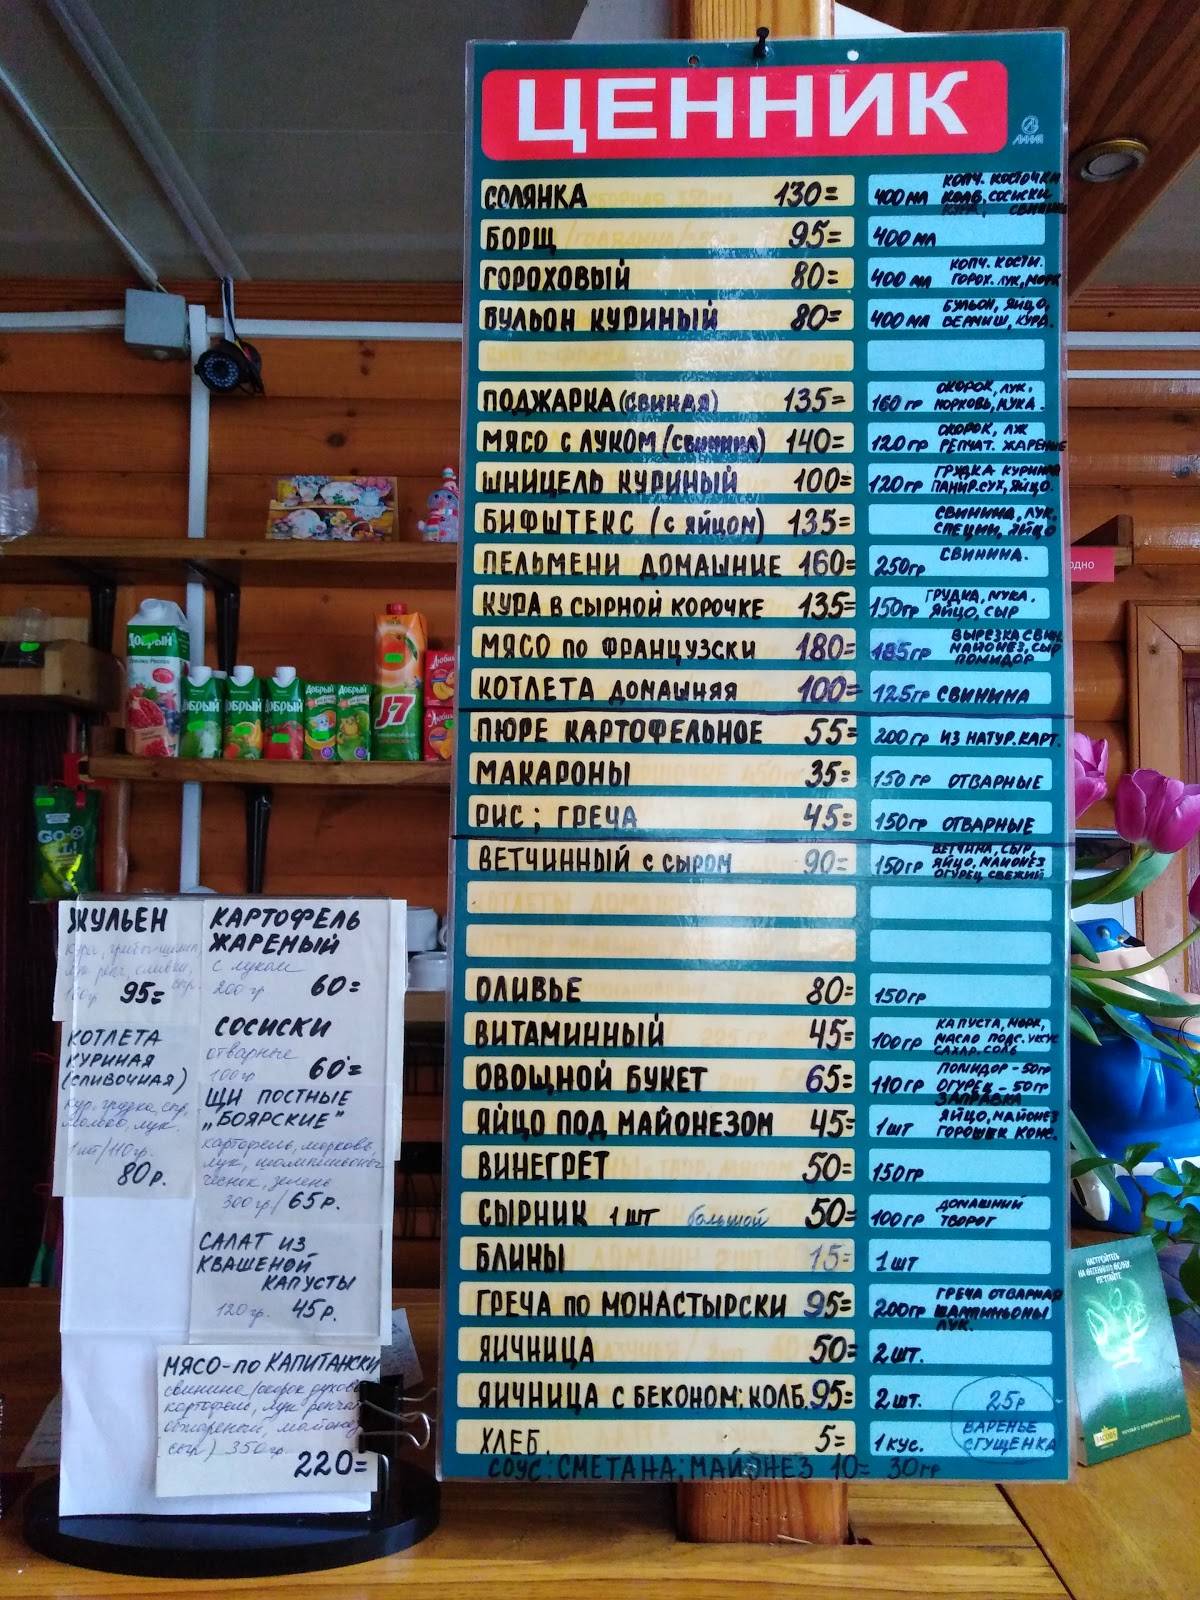 ЦЕННИК
ЛИНИЯ
СОЛЯНКА 130= 400 МЛ КОПЧ. КОСТОЧКИ КОЛБ, СОСИСКИ КУРА,
БОРЩ 95= 400 МЛ
ГОРОХОВЫЙ 80= 400 МЛ КОПЧ. КОСТИ. ГОРОХ. ЛУК, МОРК
БУЛЬОН КУРИНЫЙ 80= 400 МЛ БУЛЬОН, ЯЙЦО, ВЕРМИШ, КУРА.
ПОДЖАРКА (СВИНАЯ) 135= 160 ГР ОКОРОК, ЛУК. МОРКОВЬ, МУКА.
МЯСО С ЛУКОМ (СВИНИНА) 140= 120 ГР ОКОРОК, ЛУК РЕПЧАТ. ЖАРЕНЫЕ
ШНИЦЕЛЬ КУРИНЫЙ 100= 120 ГР ГРУДКА КУРИНАЯ ПАНИР. СУХ, ЯЙЦО.
БИФШТЕКС (С ЯЙЦОМ) 135= СВИНИНА, ЛУК. СПЕЦИИ, ЯЙЦО
ПЕЛЬМЕНИ ДОМАШНИЕ 160= 250ГР СВИНИНА.
КУРА В СЫРНОЙ КОРОЧКЕ 135= 150 ГР ГРУДКА, МУКА. ЯЙЦО, СЫР
МЯСО ПО ФРАНЦУЗСКИ 180= 185ГР ВЫРЕЗКА СВИН. МАЙОНЕЗ, СЫР ПОМИДОР
КОТЛЕТА ДОМАШНЯЯ 100= 125ГР СВИНИНА
ПЮРЕ КАРТОФЕЛЬНОЕ 55= 200ГР ИЗ НАТУР. КАРТ.
МАКАРОНЫ 35= 150 ГР ОТВАРНЫЕ
РИС; ГРЕЧА 45= 150ГР ОТВАРНЫЕ
ВЕТЧИННЫЙ С СЫРОМ 90= 150ГР ВЕТЧИНА, СЫР, ЯЙЦО, МАЙОНЕЗ ОГУРЕЦ СВЕЖИЙ
ОЛИВЬЕ 80= 150ГР
ВИТАМИННЫЙ 45= 100ГР КАПУСТА, МОРК, МАСЛО ПОДС. УКСУС САХАР. СОЛЬ
ОВОЩНОЙ БУКЕТ 65= 110 ГР ПОМИДОР - 50ГР ОГУРЕЦ - 50ГР ЗАПРАВКА
ЯЙЦО ПОД МАЙОНЕЗОМ 45= 1 ШТ ЯЙЦО, МАЙОНЕЗ ГОРОШЕК КОНС.
ВИНЕГРЕТ 50= 150ГР
СЫРНИК 1 ШТ большой 50= 100ГР ДОМАШНИЙ ТВОРОГ
БЛИНЫ 15= 1 ШТ
ГРЕЧА ПО МОНАСТЫРСКИ 95= 200ГР ГРЕЧА ОТВАРНАЯ ШАМПИНЬОНЫ ЛУК.
ЯИЧНИЦА 50= 2 ШТ.
ЯИЧНИЦА С БЕКОНОМ; КОЛБ. 95= 2 ШТ.
25р ВАРЕНЬЕ СГУЩЕНКА
ХЛЕБ. 5= 1 КУС.
СОУС: СМЕТАНА; МАЙОНЕЗ 10= 30 ГР
ЖУЛЬЕН
100гр 95=
КОТЛЕТА
КУРИНАЯ
(СЛИВОЧНАЯ)
кур. грудка, сыр,
молоко, лук.
1 шт/110гр.
80 Р.
КАРТОФЕЛЬ
ЖАРЕНЫЙ
с луком
200 гр 60=
СОСИСКИ
отварные
100гр 60=
ЩИ ПОСТНЫЕ
„БОЯРСКИЕ"
картофель, морковь,
лук, шампиньоны
чеснок, зелень
300 гр/ 65 Р.
САЛАТ ИЗ
КВАШЕНОЙ
КАПУСТЫ
120 гр. 45 Р.
МЯСО-ПО КАПИТАНСКИ
свинина/окорок
картофель, лук репчат
майонез
сыр) 350гр.
220=
Добрый
Добрый
Добрый
Добрый
Добрый
Добрый
J7
GO-
JACOBS
НАСТРОЙТЕСЬ
МЕЧТАЙТЕ